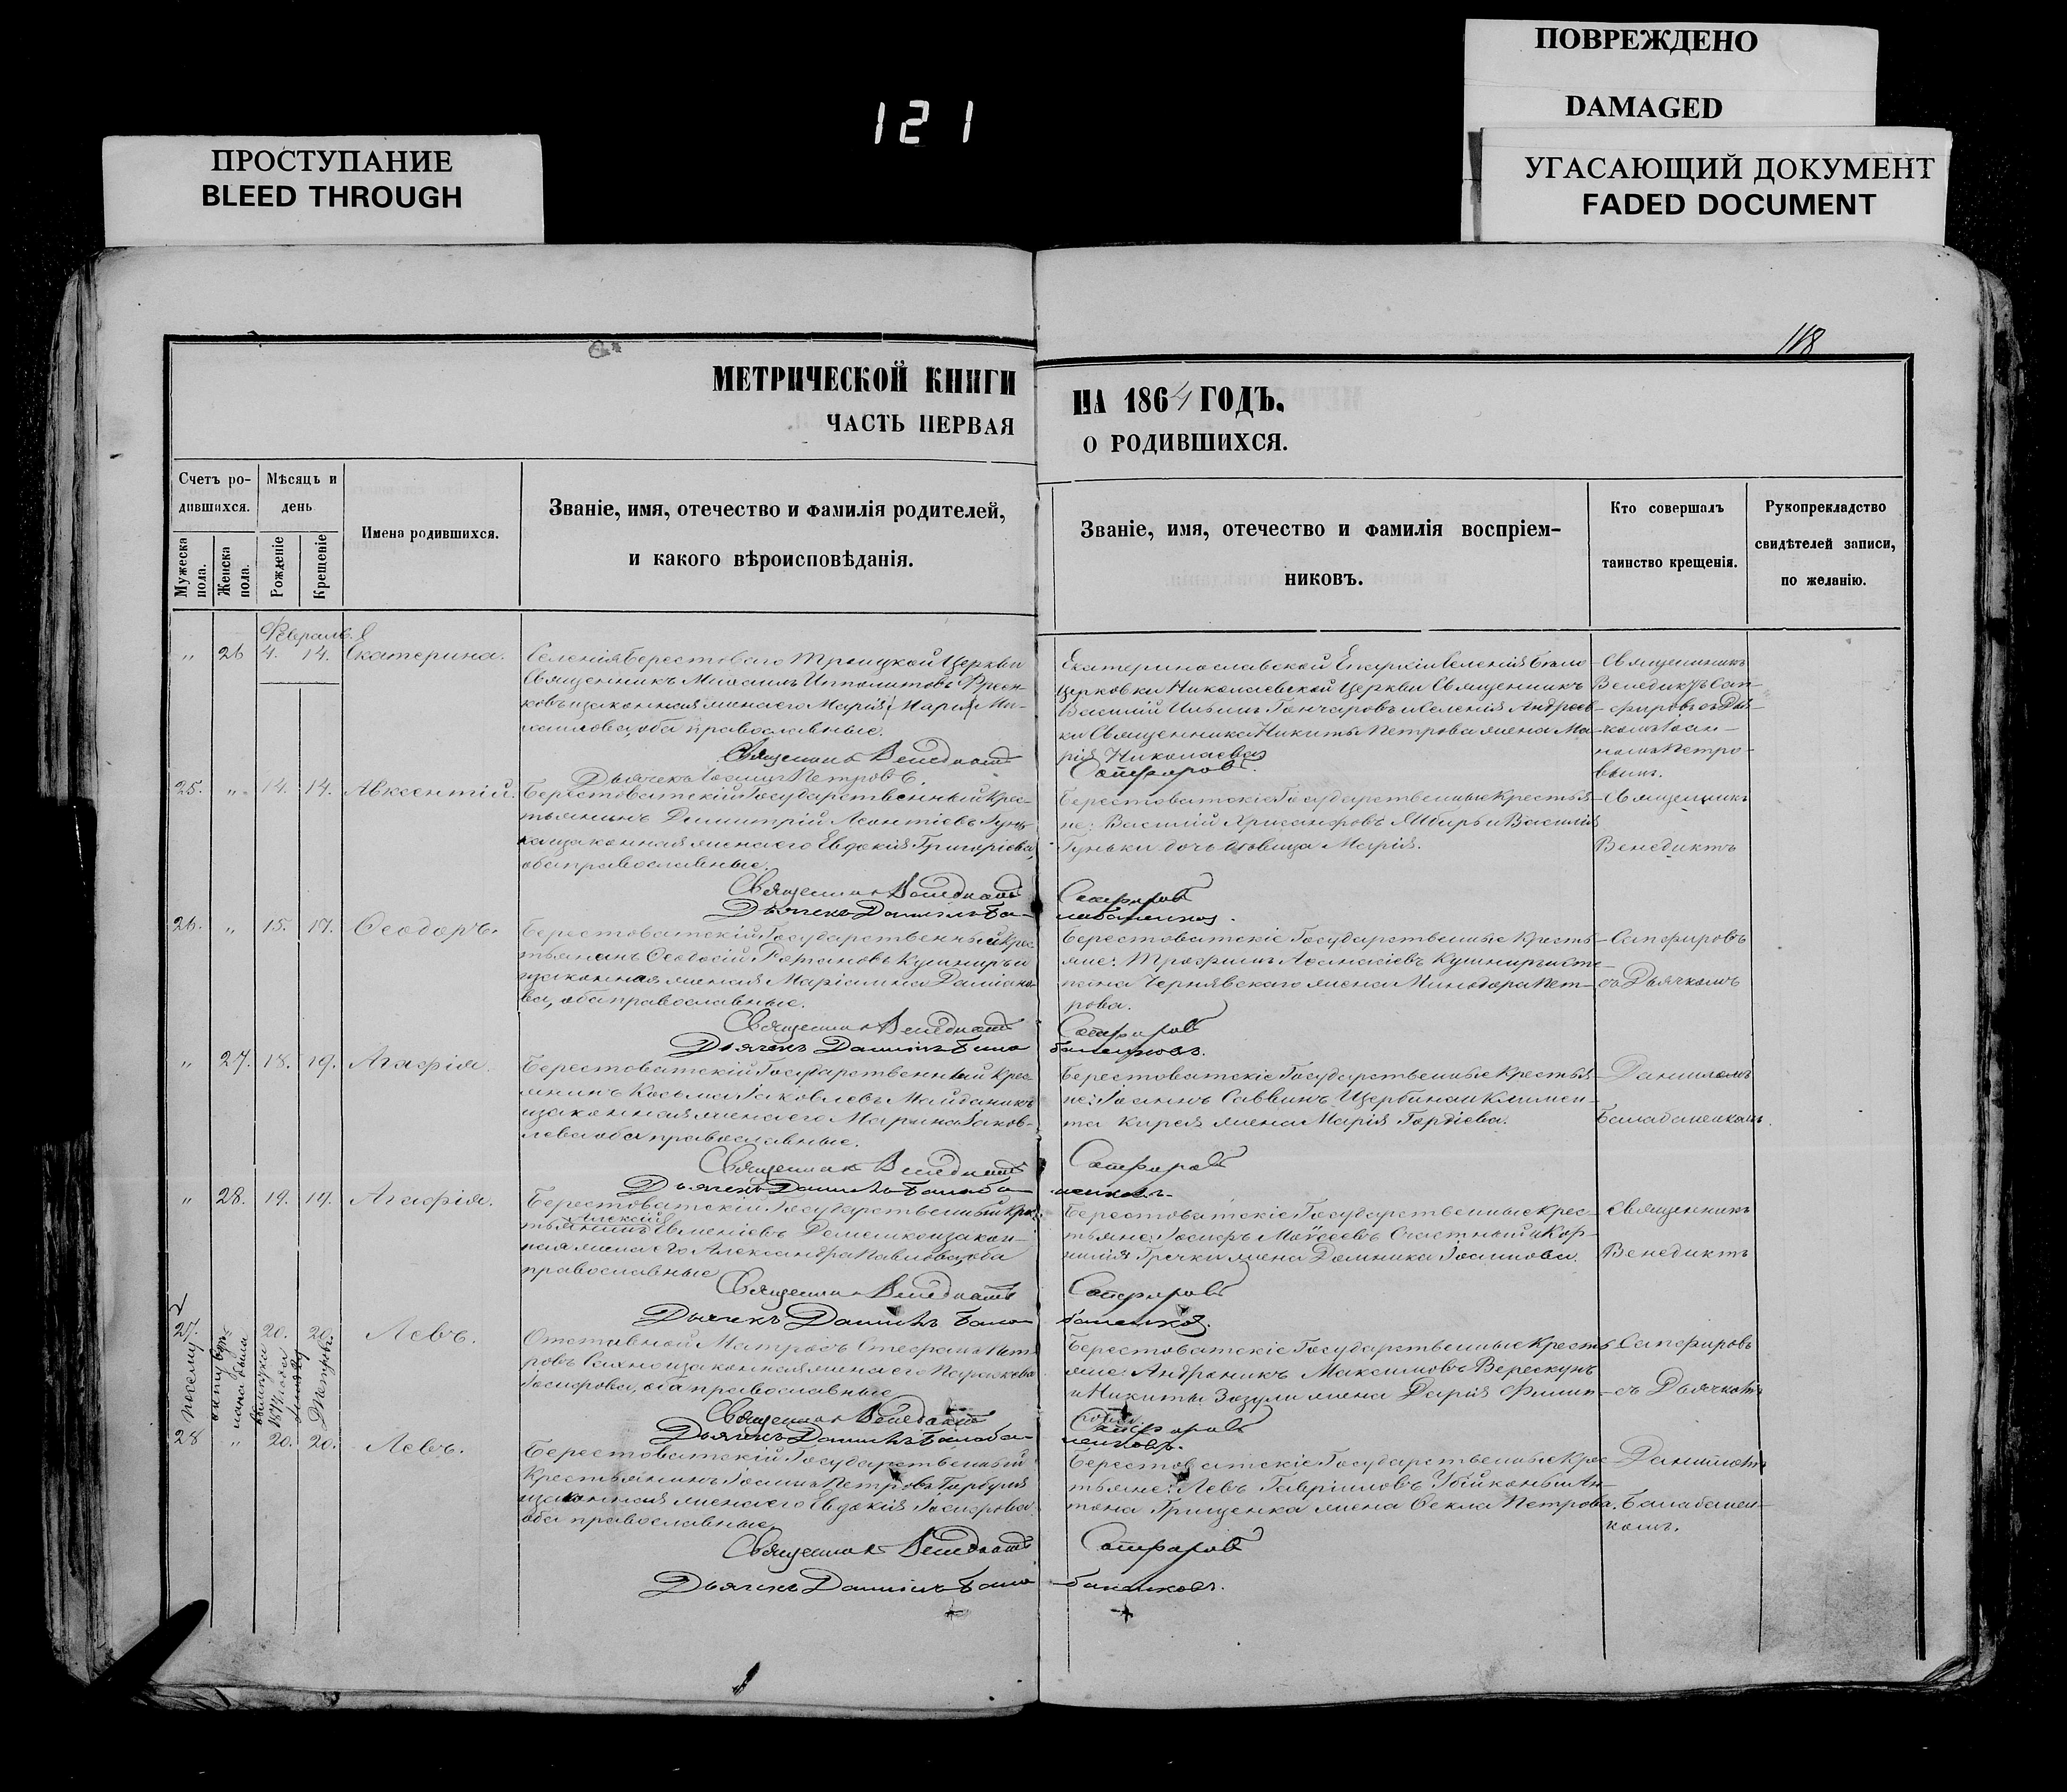 ПОВРЕЖДЕНО
DAMAGED
121
ПРОСТУПАНИЕ
BLEED THROUGH
УГАСАЮЩИЙ ДОКУМЕНТ
FADED DOCUMENT
118
МЕТРИЧЕСКОЙ КНИГИ
НА 1864 ГОДЪ.
ЧАСТЬ ПЕРВАЯ
О РОДИВШИХСЯ.
Счетъ ро-
дившихся.
Мужеска
пола.
Женска
пола.
Мѣсяцъ и
день
Рожденіе
Крещеніе
Имена родившихся.
Званіе, имя, отечество и фамилія родителей,
и какого вѣроисповѣданія.
Званіе, имя, отечество и фамилія воспріем-
никовъ.
Кто совершалъ
таинство крещенія.
Рукоприкладство
свидѣтелей записи,
по желанію.
Февраль
„ 26 4. 14. Екатерина.
Селенія Берестоваго Троицкой Церкви
Священникъ Михаилъ Ипполитовъ
законная жена его Марія Ми-
хаилова, оба православные.
Священникъ Венедиктъ
Дьячекъ Іоаннъ Петровъ.
Екатеринославской Епархіи Селенія Бѣло-
церковки Николаевской Церкви Священникъ
Василій Ильинъ Гончаровъ и Селенія Андреев-
ки Священника Никиты Петрова жена Ма-
рія Николаева
Сапфировъ.
Священникъ
Венедиктъ Сап-
фировъ съ Дья-
комъ Іоан-
номъ Петро-
вымъ.
25. „ 14. 14. Авксентій.
Берестоватскій Государственный Крес-
тьянинъ Димитрій Леонтіевъ Гунь-
ка и законная жена его Евдокія Григоріева,
оба православные.
Священникъ Венедиктъ
Дьячекъ Даніилъ Ба-
Берестоватскіе Государственные Крестья-
не: Василій Хрисанфовъ и Василія
Гуньки дочь дѣвица Марія.
Сапфировъ
лабаненковъ.
Священникъ
Венедиктъ
26. „ 15. 17. Ѳеодоръ.
Берестоватскій Государственный Крес-
тьянинъ Ѳеодосій Романовъ Кушниръ и
законная жена Маріамна Даміано-
ва, оба православные.
Священникъ Венедиктъ
Дьячекъ Даніилъ Бала
Берестоватскіе Государственные Кресть-
яне: Трофимъ Аѳанасіевъ Кушниръ и Сте-
пана Чернявскаго жена Минодора Пет-
рова.
Сапфировъ
баненковъ.
Сапфировъ
съ Дьячкомъ
„ 27. 18. 19. Агафія.
Берестоватскій Государственный Крес-
янинъ Косьма Іаковлевъ Майданикъ
и законная жена его Марина Іаков-
лева оба православные.
Священникъ Венедиктъ
Дьячекъ Даніилъ Балаба-
Берестоватскіе Государственные Крестья-
не: Іоаннъ Саввинъ Щербина и Климен-
та Кирея жена Марія Гордіева.
Сапфировъ
ненковъ.
Даниломъ
Балабаненкомъ.
„ 28. 19. 19. Агафія.
Берестоватскій Государственный Крес-
Алексій
тьянинъ Евменіевъ Демешко и закон-
ная жена его Александра Павлова, оба
православные
Священникъ Венедиктъ
Дьячекъ Даніилъ Бала
Берестоватскіе Государственные Крес-
тьяне: Іосифъ Моѵсеевъ Счастный и Кор-
нилія Гречки жена Домника Іоаннова.
Сапфировъ
баненковъ.
Священникъ
Венедиктъ
27. „ 20. 20. Левъ.
Отставной Матросъ Стефанъ Пет-
ровъ Сахно и законная жена его Параскева
Іосифова, оба православные
Священникъ Венедиктъ
Дьячекъ Даніилъ Балаба-
Берестоватскіе Государственные Кресть-
яне: Андроникъ Максимовъ Верескунъ
и Никиты Зозули жена Дарія Филип-
пова.
Сапфировъ
ненковъ.
Сапфировъ
съ Дьячкомъ
28 „ 20. 20. Левъ.
Берестоватскій Государственный
Крестьянинъ Іоаннъ Петровъ
и законная жена его Евдокія Іосифова
оба православные
Священникъ Венедиктъ
Дьячекъ Даніилъ Бала
Берестоватскіе Государственные Крес-
тьяне: Левъ Гавріиловъ и Ан-
тона Грищенка жена Ѳекла Петрова.
Сапфировъ
баненковъ.
Даніиломъ
Балабанен-
комъ.